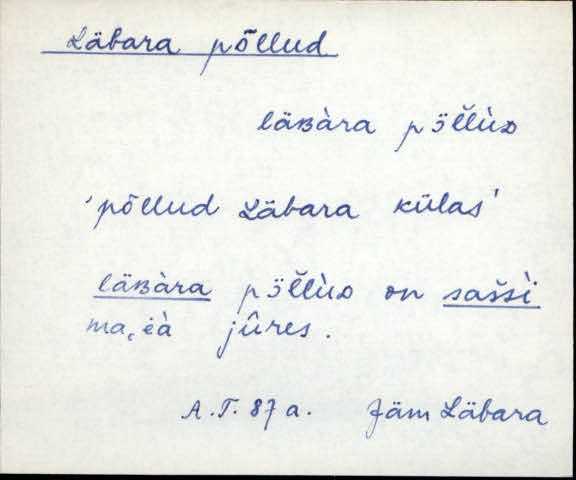 Läbara põllud
läʙàra pɜ̈l̆lùᴅ
'põllud Läbara külas'
läʙàra pɜ̈l̆lùᴅ on sašsì
jûres.
A.T. 87 a. Jäm Läbara